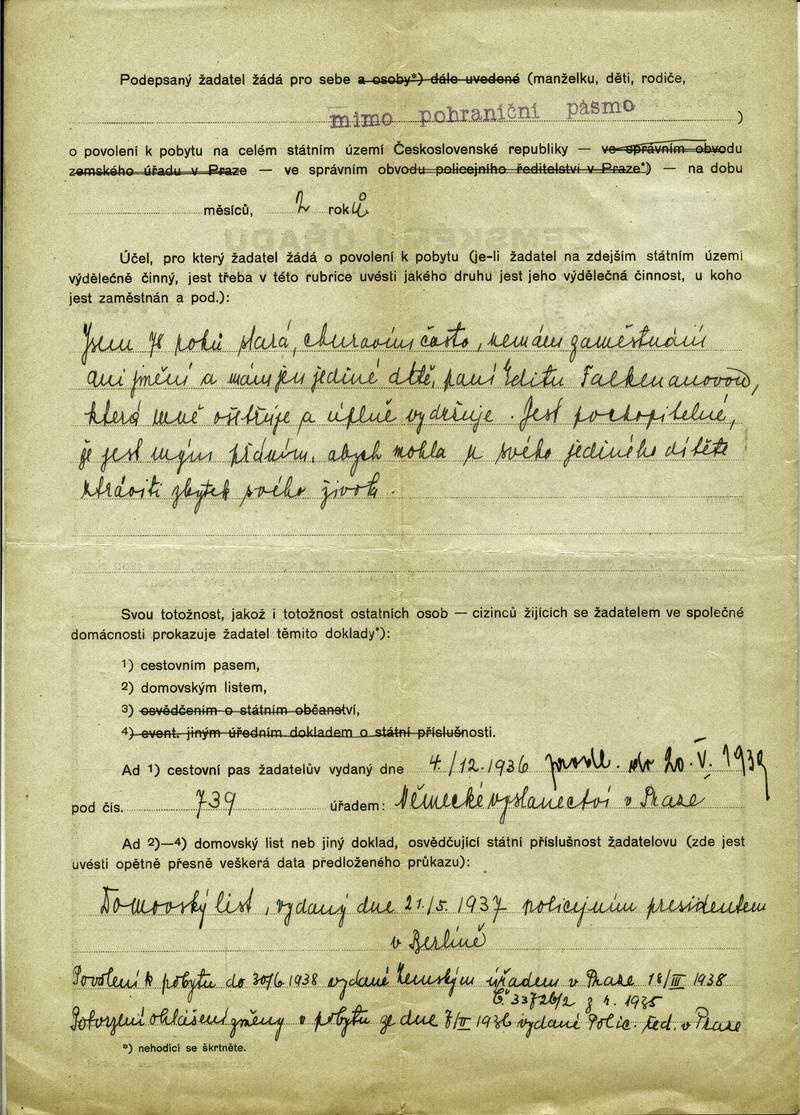 Podepsaný žadatel žádá pro sebe a osoby*) dále uvedené (manželku, děti, rodiče,
mimo pohraniční pásmo )
o povolení k pobytu na celém státním území Československé republiky — ve správním obvodu
zemského úřadu v Praze — ve správním obvodu policejního ředitelství v Praze*) — na dobu
měsíců, 2 roků
Účel, pro který žadatel žádá o povolení k pobytu (je-li žadatel na zdejším státním území
výdělečně činný, jest třeba v této rubrice uvésti jakého druhu jest jeho výdělečná činnost, u koho
jest zaměstnán a pod.):
Jsem 78 roků stará, churavím často, nemám zaměstnání
ani jmění a mám jen jediné dítě, paní Editu Falkenauovou,
která mně ošetřuje a úplně vydržuje. Jest pochopitelné,
že jest mým přáním, abych mohla u svého jediného dítěte
ztráviti zbytek svého života.
Svou totožnost, jakož i totožnost ostatních osob — cizinců žijících se žadatelem ve společné
domácnosti prokazuje žadatel těmito doklady*):
1) cestovním pasem,
2) domovským listem,
3) osvědčením o státním občanství,
4) event. jiným úředním dokladem o státní příslušnosti.
Ad 1) cestovní pas žadatelův vydaný dne 4./12.1936 prodl. do 20.V. 1939
pod čís. 739 úřadem: Německé vyslanectví v Praze
Ad 2)—4) domovský list neb jiný doklad, osvědčující státní příslušnost žadatelovu (zde jest
uvésti opětně přesně veškerá data předloženého průkazu):
Domovský list, vydaný dne 21./5. 1937 policejním presidentem
v Berlíně
Povolení k pobytu do 30/6.1938 vydané Zemským úřadem v Praze 18/III 1938
Č. 33726/2 z r. 1935
Potvrzení ohlášení změny v pobytu ze dne 7/II 1936 vydané Polic. řed. v Praze
*) nehodící se škrtněte.